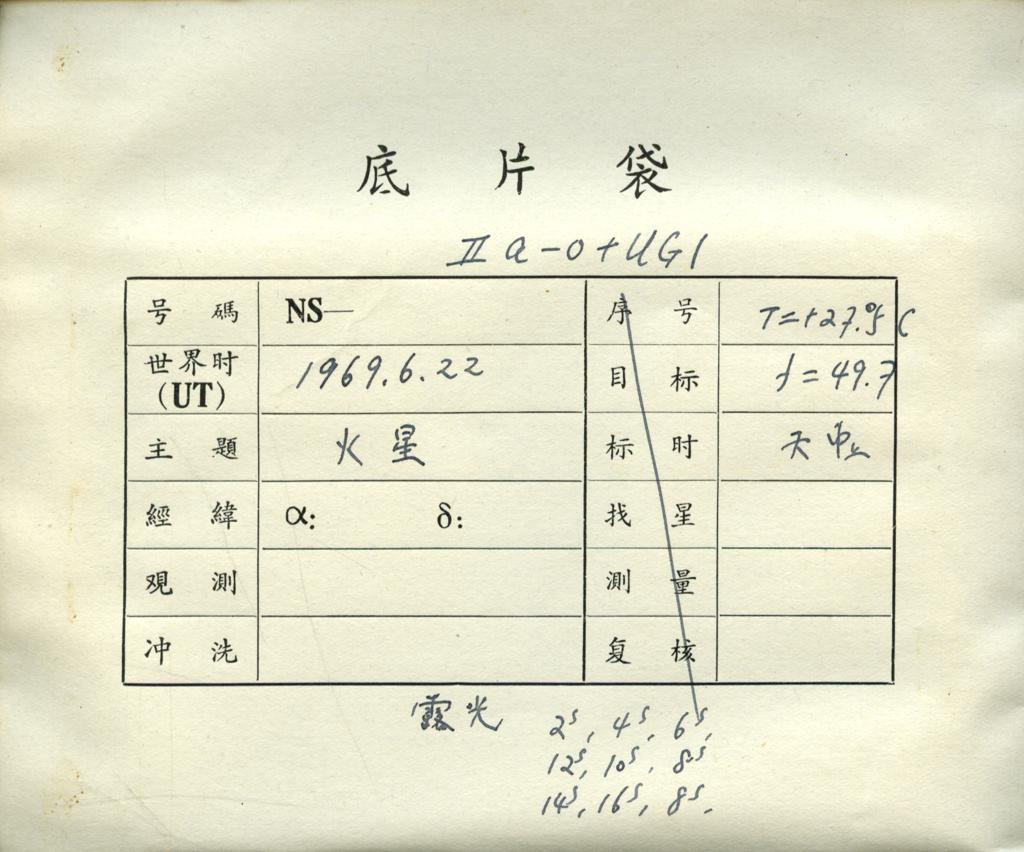 底片袋
II a-o+UG1
号碼 NS— 序号 T=+27.°5 C
世界时 (UT) 1969.6.22 目标 f=49.7
主題 火星 标时
經緯 α: δ: 找星
观測 測量
冲洗 复核
露光 2s, 4s, 6s,
12s, 10s, 8s
14s, 16s, 8s.